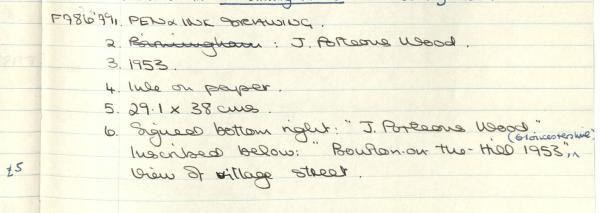 F786'79 1. PEN & INK DRAWING.
2. Birmingham : J. Porteous Wood.
3. 1953.
4. Ink on paper.
5. 29.1 x 38 cms.
6. Signed bottom right: "J. Porteous Wood."
(Gloucestershire)
Inscribed below: "Bourton-on-the-Hill 1953",
£5 View of village street.